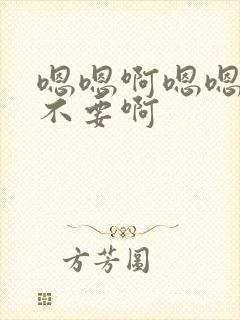 嗯嗯啊嗯嗯
不要啊
方芳園